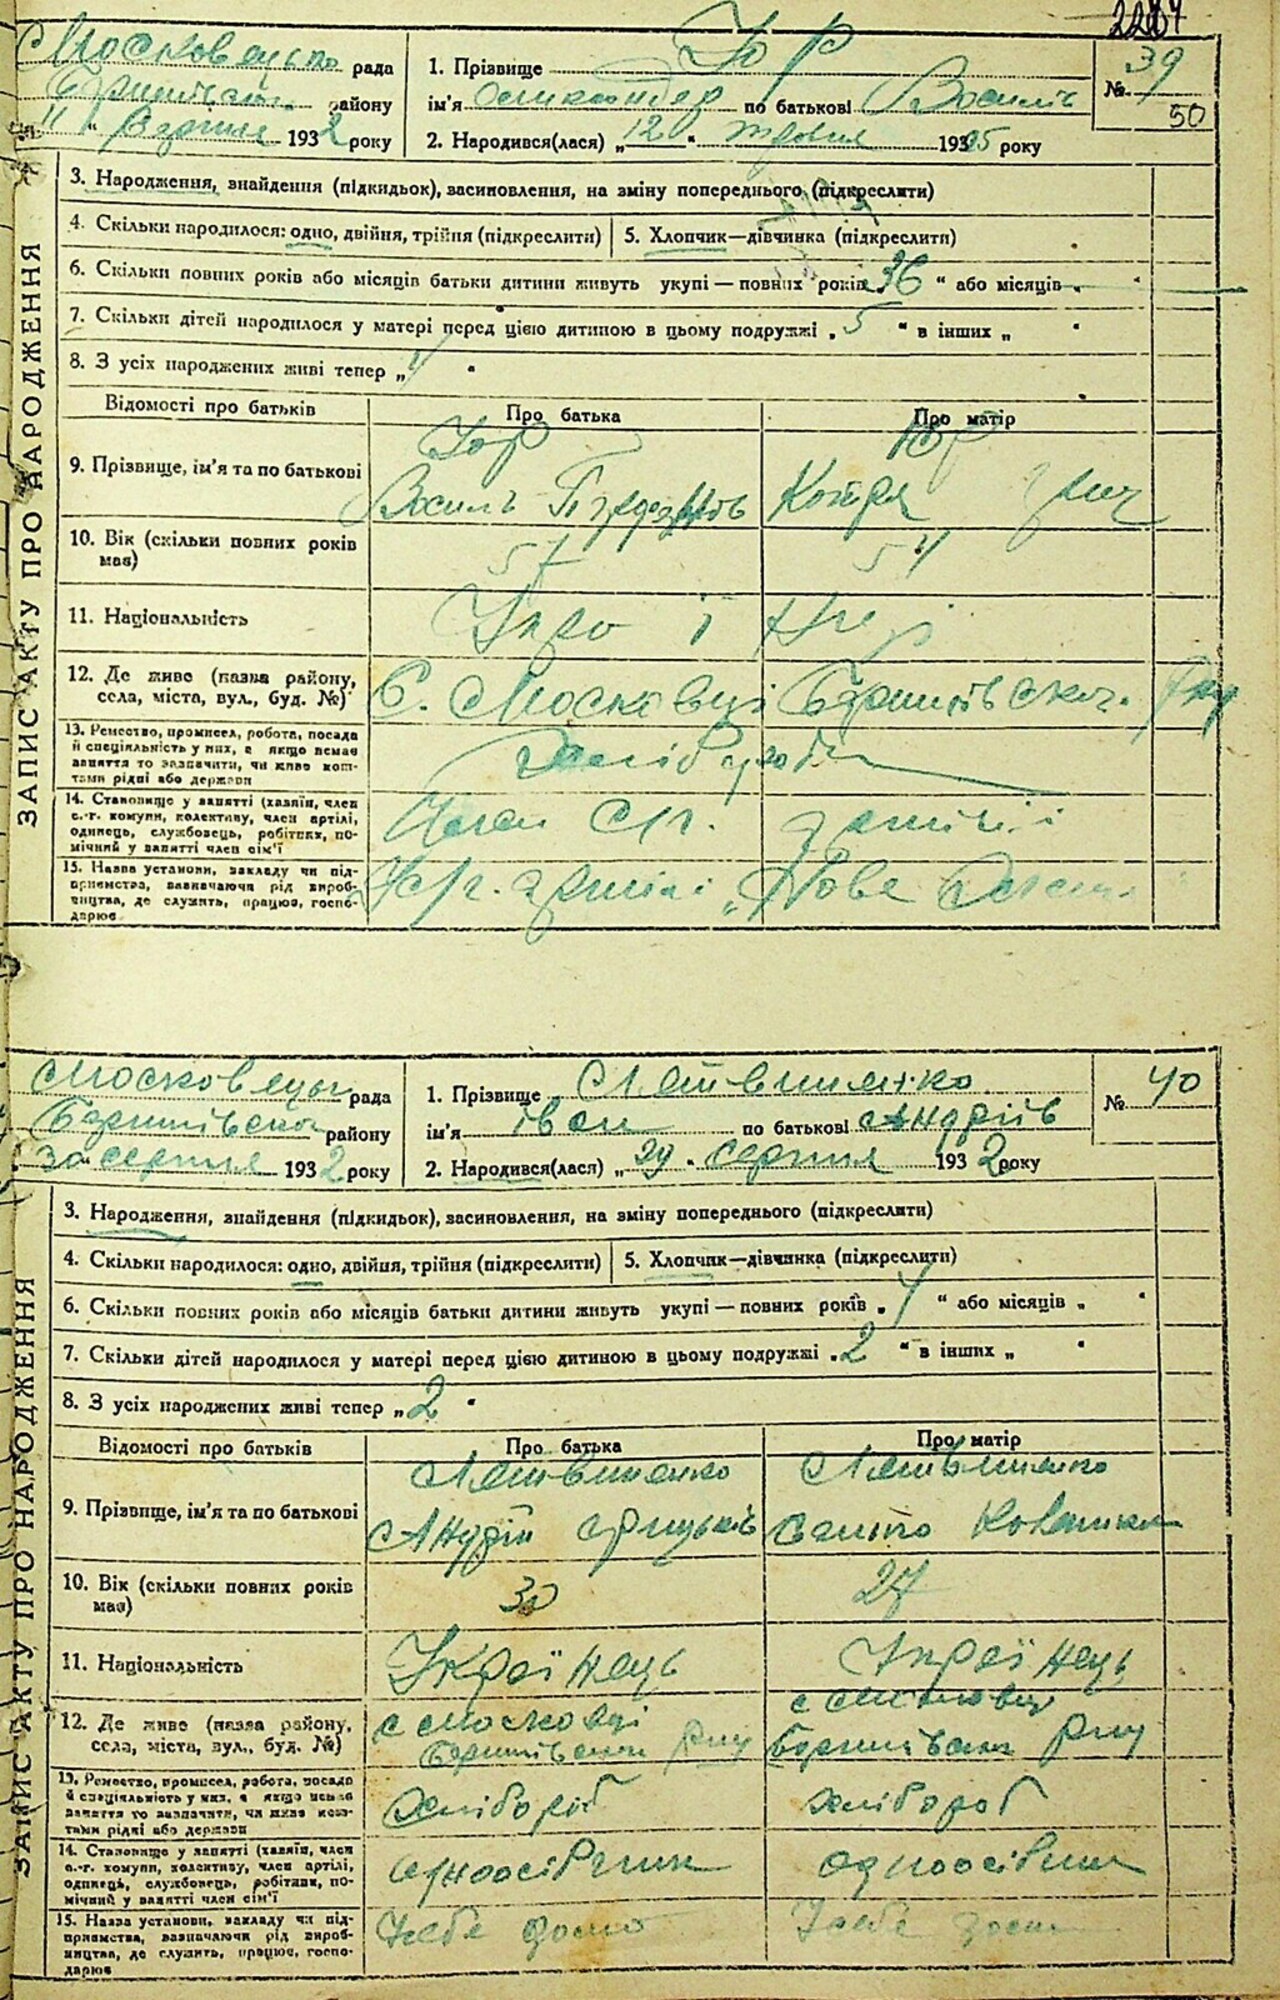 39
50
Московецько рада
району
серпня 1932 року
1. Прізвище Юр
ім'я Олександер по батькові Василів
2. Народився(лася) „12" травня 1905 року
№
ЗАПИС АКТУ ПРО НАРОДЖЕННЯ
3. Народження, знайдення (підкидьок), засиновлення, на зміну попереднього (підкреслити)
4. Скільки народилося: одно, двійня, трійня (підкреслити)
5. Хлопчик—дівчинка (підкреслити)
6. Скільки повних років або місяців батьки дитини живуть укупі — повних років 36 " або місяців „ "
7. Скільки дітей народилося у матері перед цією дитиною в цьому подружжі „ 5 " в інших „ "
8. З усіх народжених живі тепер „4"
Відомості про батьків
Про батька
Про матір
9. Прізвище, ім'я та по батькові
Юр
Юр
Василь
10. Вік (скільки повних років має)
57
54
11. Національність
12. Де живе (назва району, села, міста, вул., буд. №)
С. Московці Баришівськ.
13. Ремество, промисел, робота, посада й спеціяльність у них, а якщо немає заняття то зазначити, чи живе коштами рідні або держави
Хлібороби
14. Становище у занятті (хазяїн, член с.-г. комуни, колективу, член артілі, одинець, службовець, робітник, помічний у занятті член сім'ї
Член с/г. артілі
15. Назва установи, закладу чи підприємства, зазначаючи рід виробництва, де служить, працює, господарює
У с/г. артілі „Нове
Московецька рада
Баришівськ району
30 серпня 1932 року
1. Прізвище Литвиненко
ім'я Іван по батькові Андріїв
2. Народився(лася) „29" серпня 1932 року
№ 40
ЗАПИС АКТУ ПРО НАРОДЖЕННЯ
3. Народження, знайдення (підкидьок), засиновлення, на зміну попереднього (підкреслити)
4. Скільки народилося: одно, двійня, трійня (підкреслити)
5. Хлопчик—дівчинка (підкреслити)
6. Скільки повних років або місяців батьки дитини живуть укупі — повних років „4" або місяців „ "
7. Скільки дітей народилося у матері перед цією дитиною в цьому подружжі „2 " в інших „ "
8. З усіх народжених живі тепер „2"
Відомості про батьків
Про батька
Про матір
9. Прізвище, ім'я та по батькові
Литвиненко
Литвиненко
Андрій Грицьків
10. Вік (скільки повних років має)
30
27
11. Національність
Українець
Українець
12. Де живе (назва району, села, міста, вул., буд. №)
с Московці
Баришівськ рну
с Московці
Баришівськ рну
13. Ремество, промисел, робота, посада й спеціяльність у них, а якщо немає заняття то зазначити, чи живе коштами рідні або держави
хлібороб
хлібороб
14. Становище у занятті (хазяїн, член с.-г. комуни, колективу, член артілі, одинець, службовець, робітник, помічний у занятті член сім'ї
одноосібник
одноосібник
15. Назва установи, закладу чи підприємства, зазначаючи рід виробництва, де служить, працює, господарює
У себе дома
У себе дома